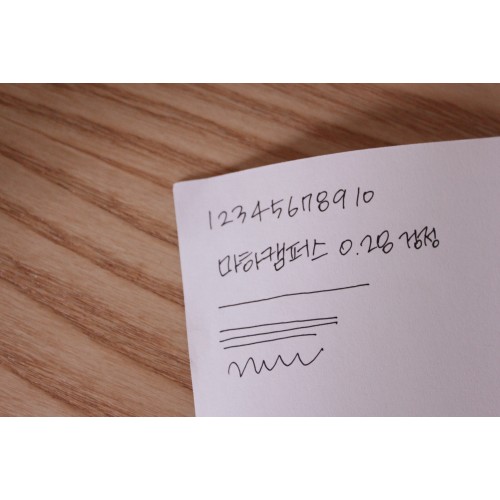 12345678910
마하캠퍼스 0.28 검정